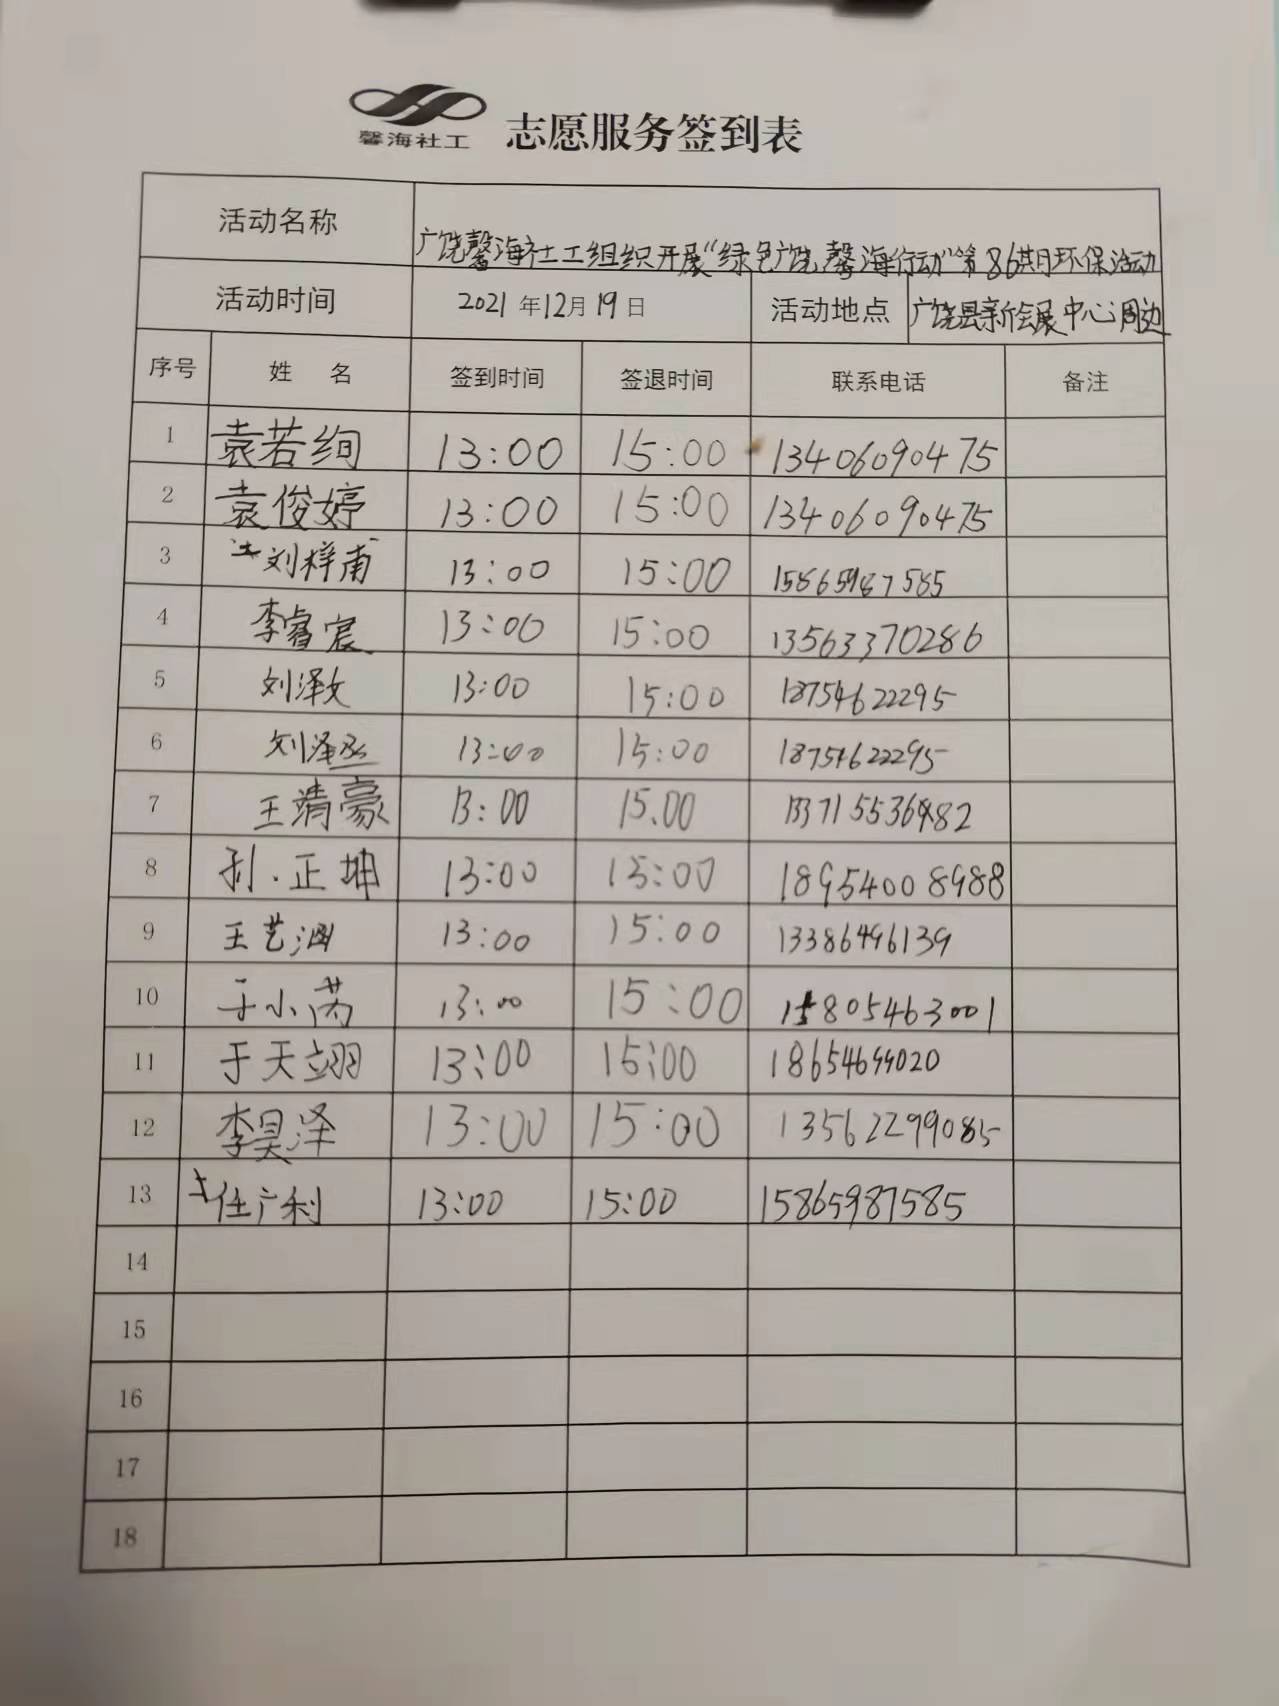 馨海社工 志愿服务签到表
活动名称 广饶馨海社工组织开展“绿色广饶 馨海行动”第86期环保活动
活动时间 2021年12月19日 活动地点 广饶县新会展中心周边
序号 姓 名 签到时间 签退时间 联系电话 备注
1 袁若绚 13:00 15:00 13406090475
2 袁俊婷 13:00 15:00 13406090475
3 刘梓甫 13:00 15:00 15865987585
4 李睿宸 13:00 15:00 13563370286
5 刘泽文 13:00 15:00 18754622295
6 刘泽丞 13:00 15:00 18754622295
7 王靖豪 13:00 15.00
8 孙.正坤 13:00 15:00 18954008988
9 王艺涵 13:00 15:00 13386496139
10 于小芮 13:00 15:00 15805463001
11 于天翊 13:00 15:00
12 李昊泽 13:00 15:00 13562299085
13 任广利 13:00 15:00 15865987585
14
15
16
17
18